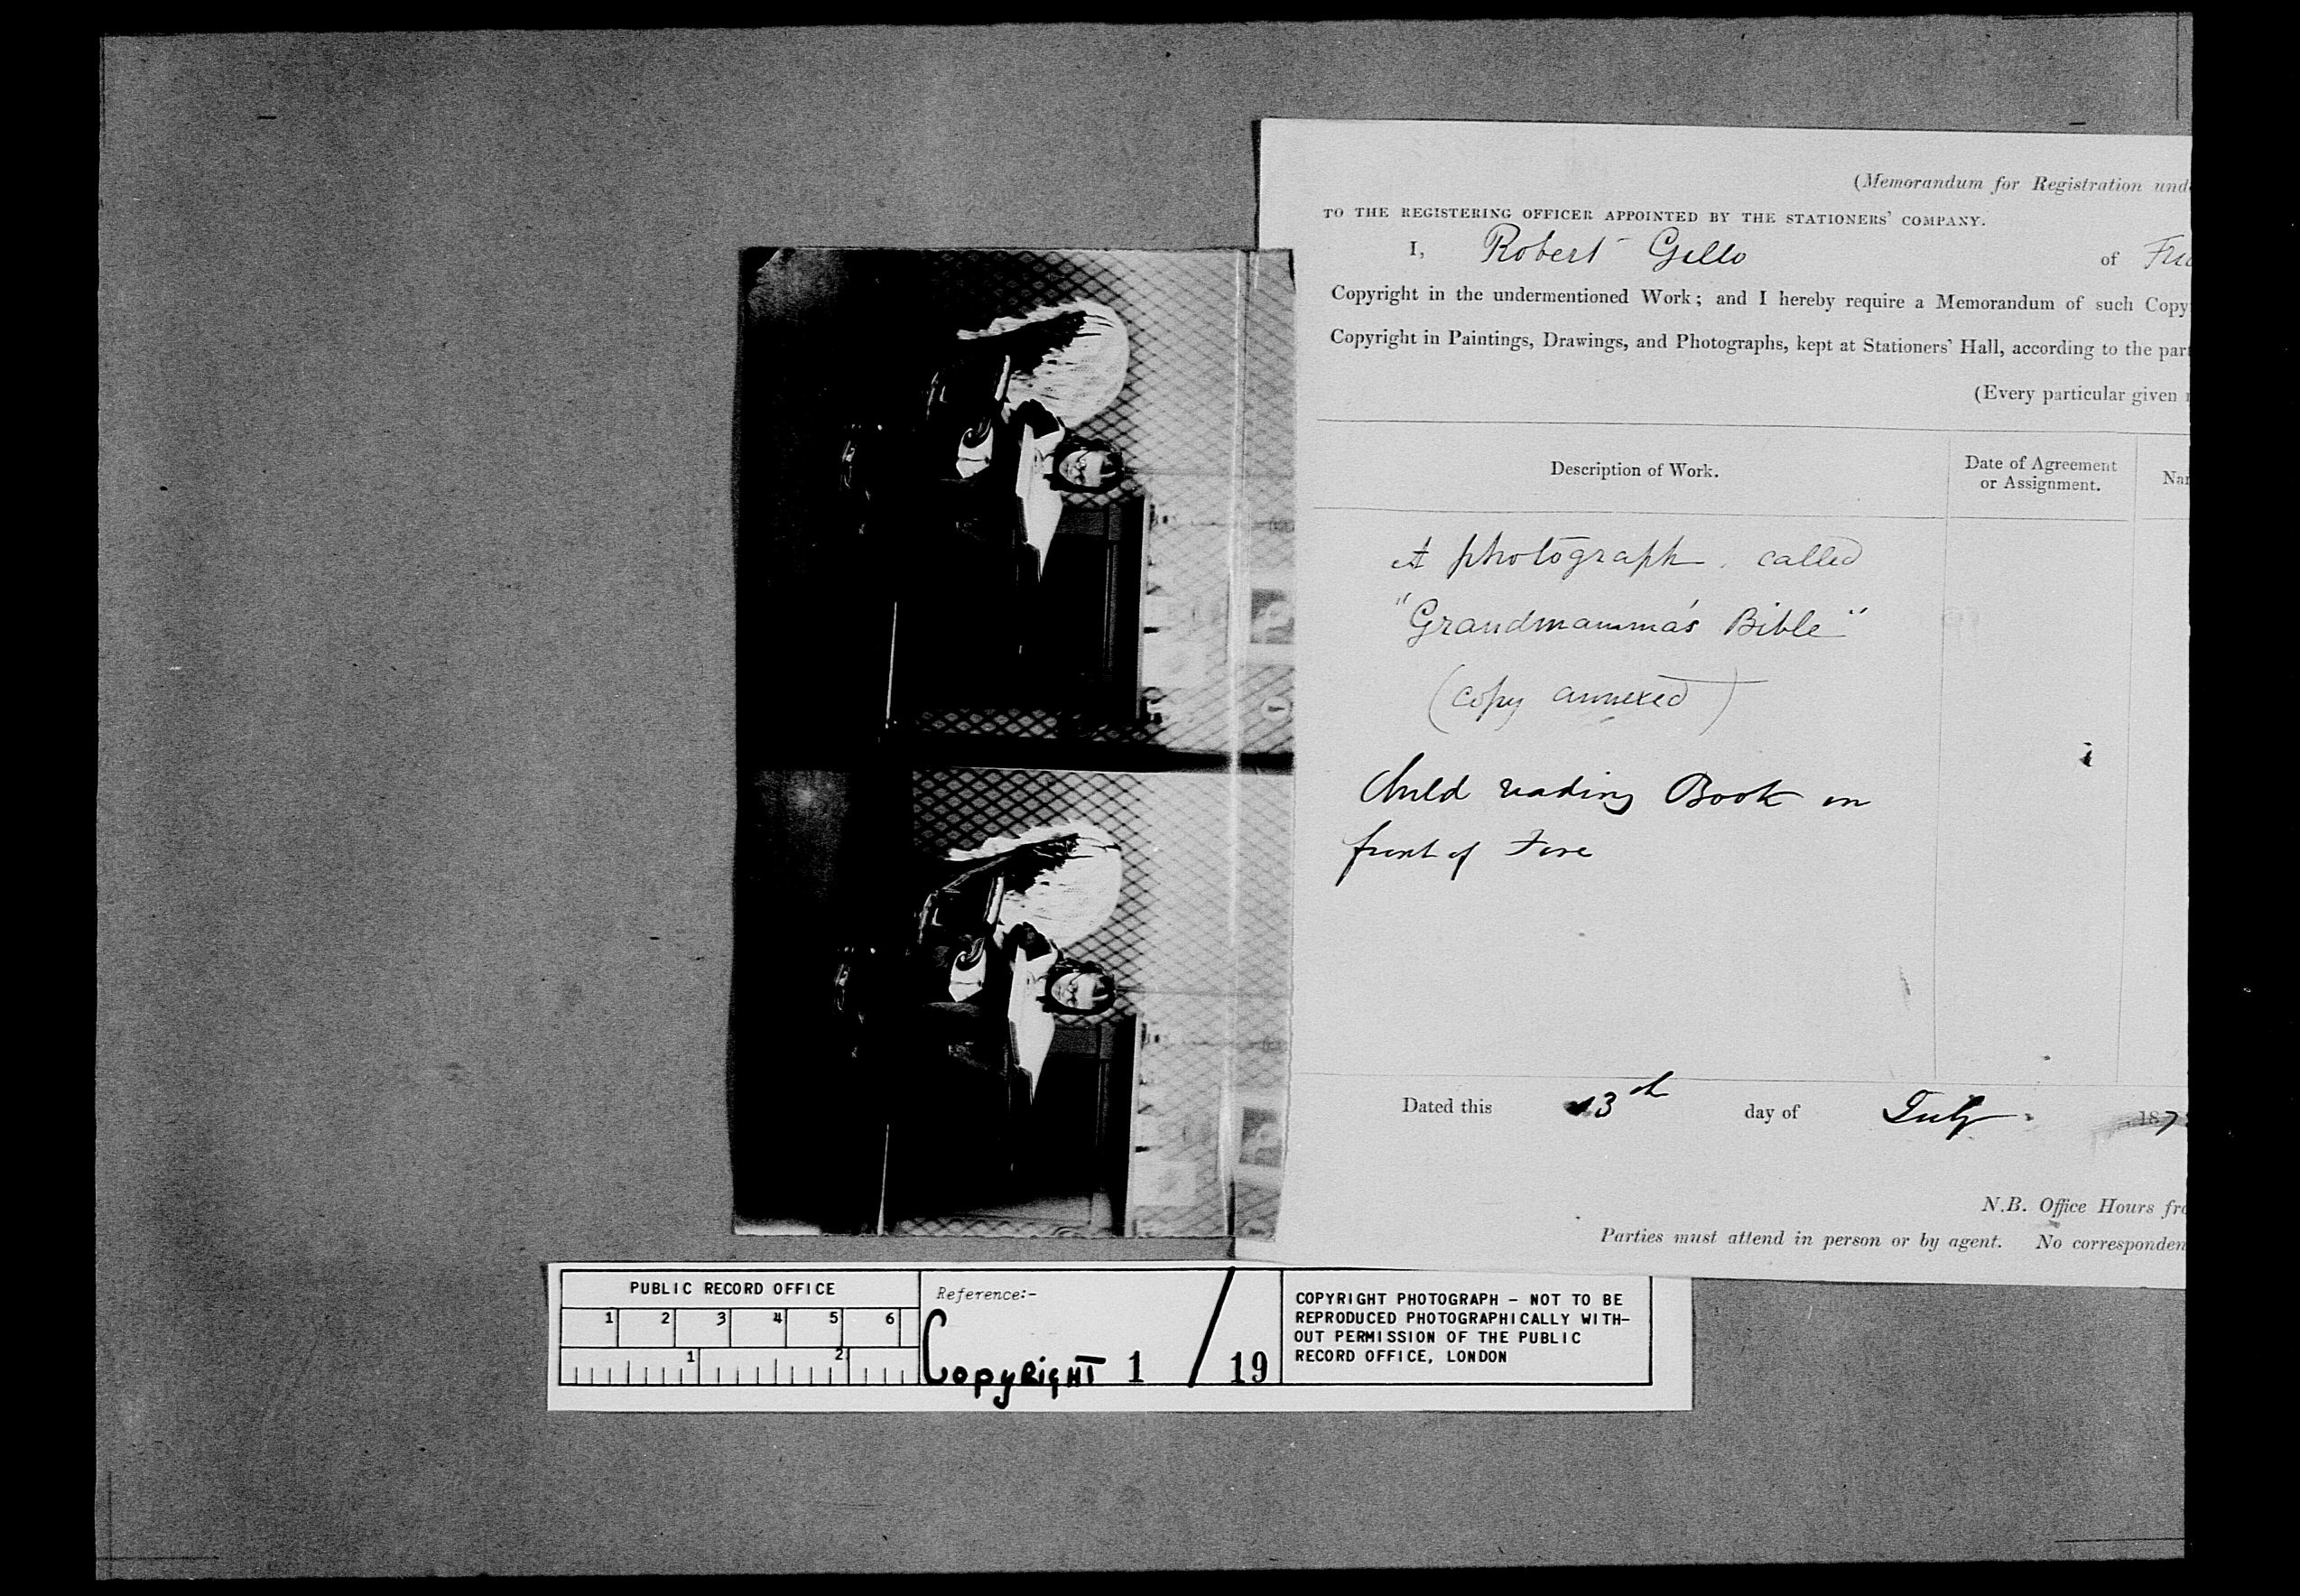 (Memorandum for Registration und
TO THE REGISTERING OFFICER APPOINTED BY THE STATIONERS' COMPANY.
I, Robert Gillo of
Copyright in the undermentioned Work; and I hereby require a Memorandum of such Copy
Copyright in Paintings, Drawings, and Photographs, kept at Stationers' Hall, according to the part
(Every particular given
Description of Work.
Date of Agreement
or Assignment.
Nam
A photograph called
"Grandmamma's Bible"
(copy annexed)
Child reading Book in
front of Fire
Dated this 13th day of July 187
N.B. Office Hours fro
Parties must attend in person or by agent. No corresponden
PUBLIC RECORD OFFICE
1 2 3 4 5 6
1 2
Reference:-
COPYRIGHT 1 / 19
COPYRIGHT PHOTOGRAPH - NOT TO BE
REPRODUCED PHOTOGRAPHICALLY WITH-
OUT PERMISSION OF THE PUBLIC
RECORD OFFICE, LONDON